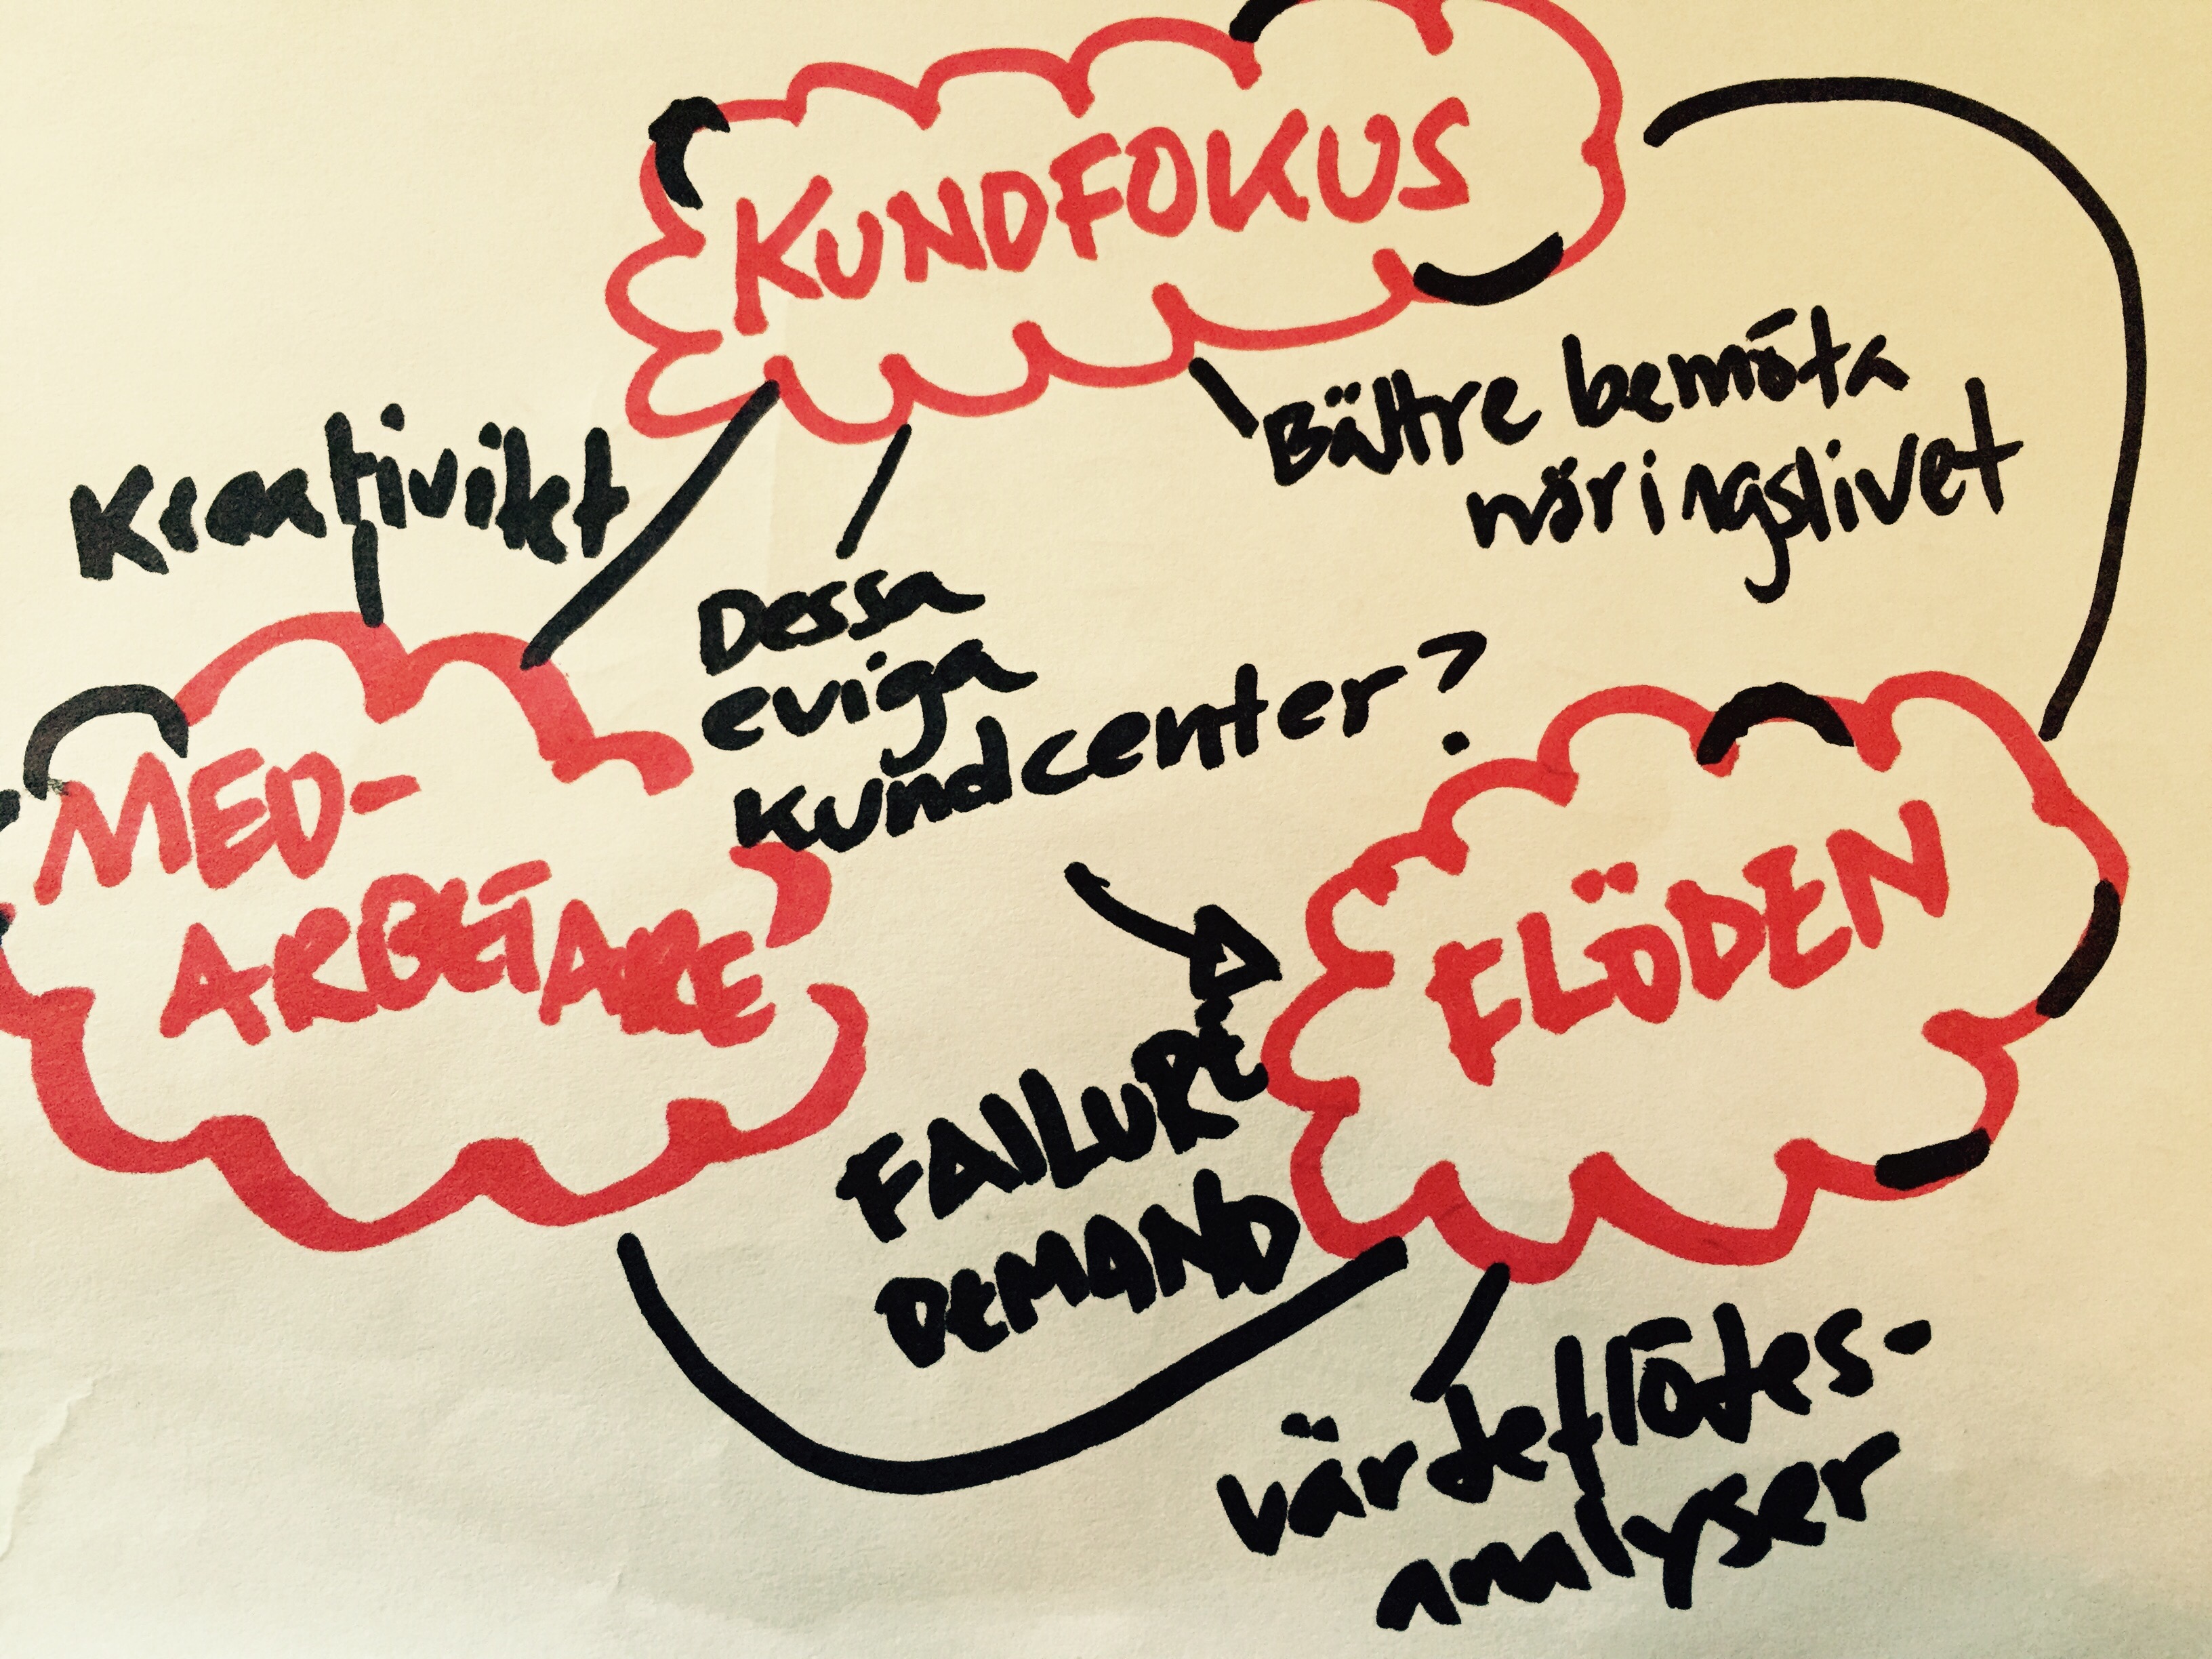 KUNDFOKUS
Bättre bemöta
näringslivet
Kreativitet
Dessa
eviga
kundcenter?
MED-
ARBETARE
FLÖDEN
FAILURE
DEMAND
värdeflödes-
analyser